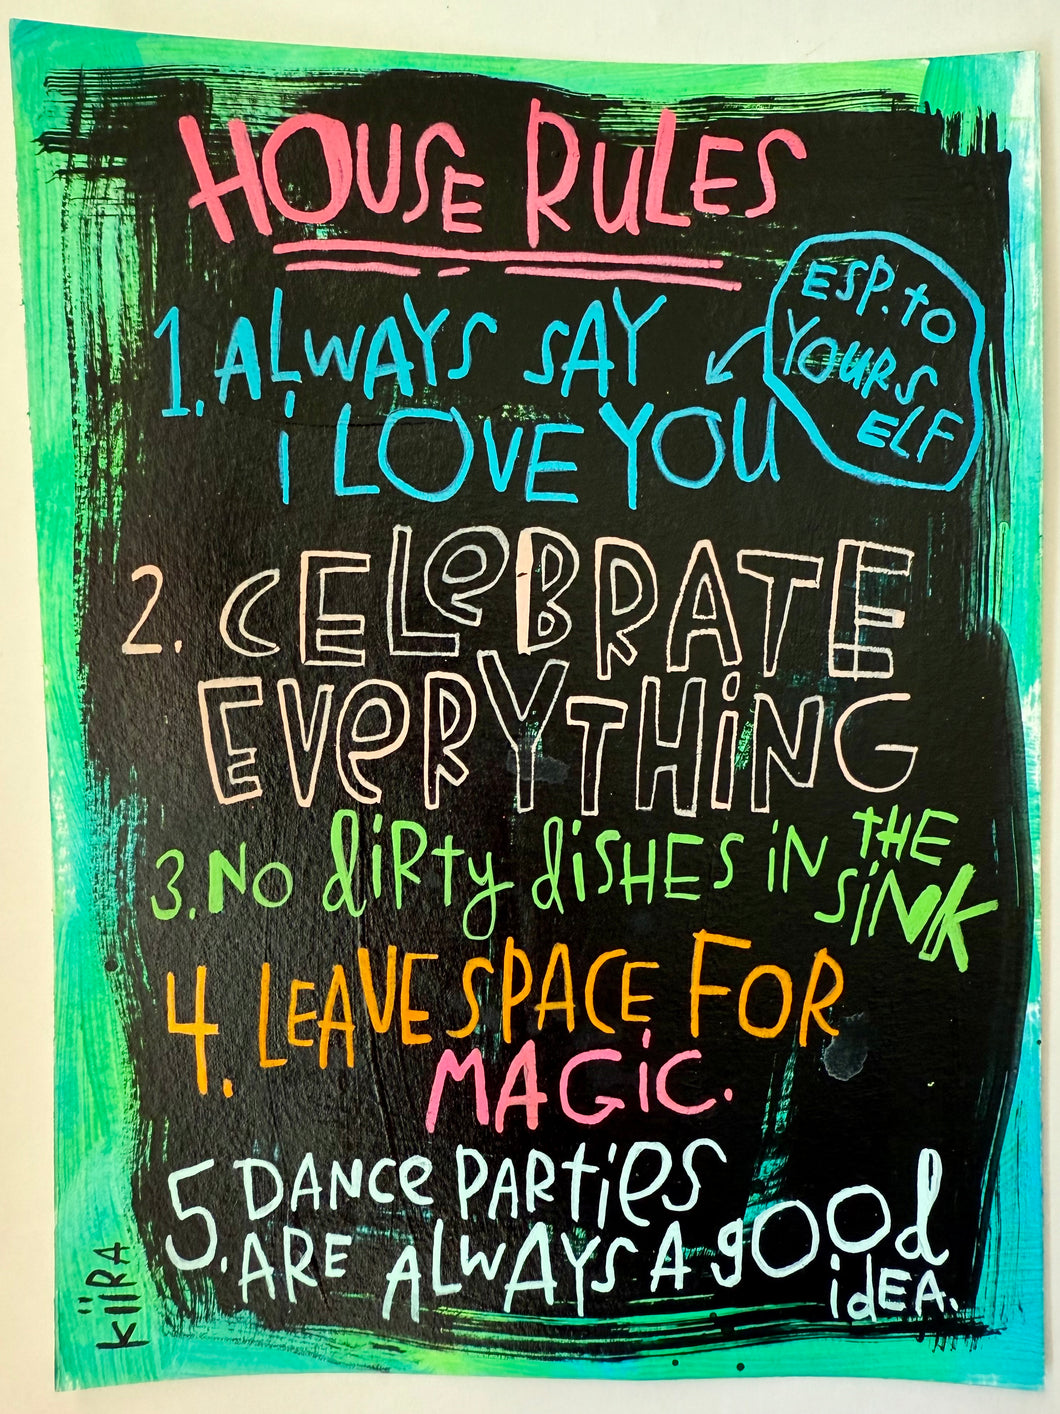 HOUSE RULES
1. ALWAYS SAY
i LOVE YOU
ESP. to
YOURS
ELF
2. CELeBRATE
EVeRYTHiNG
3. No diRty disHES iN THE
SiNK
4. LEAVE SPACE FOR
MAGiC.
5. DANCe PARtieS
ARE ALWAYS A good
idEA.
KiiRA